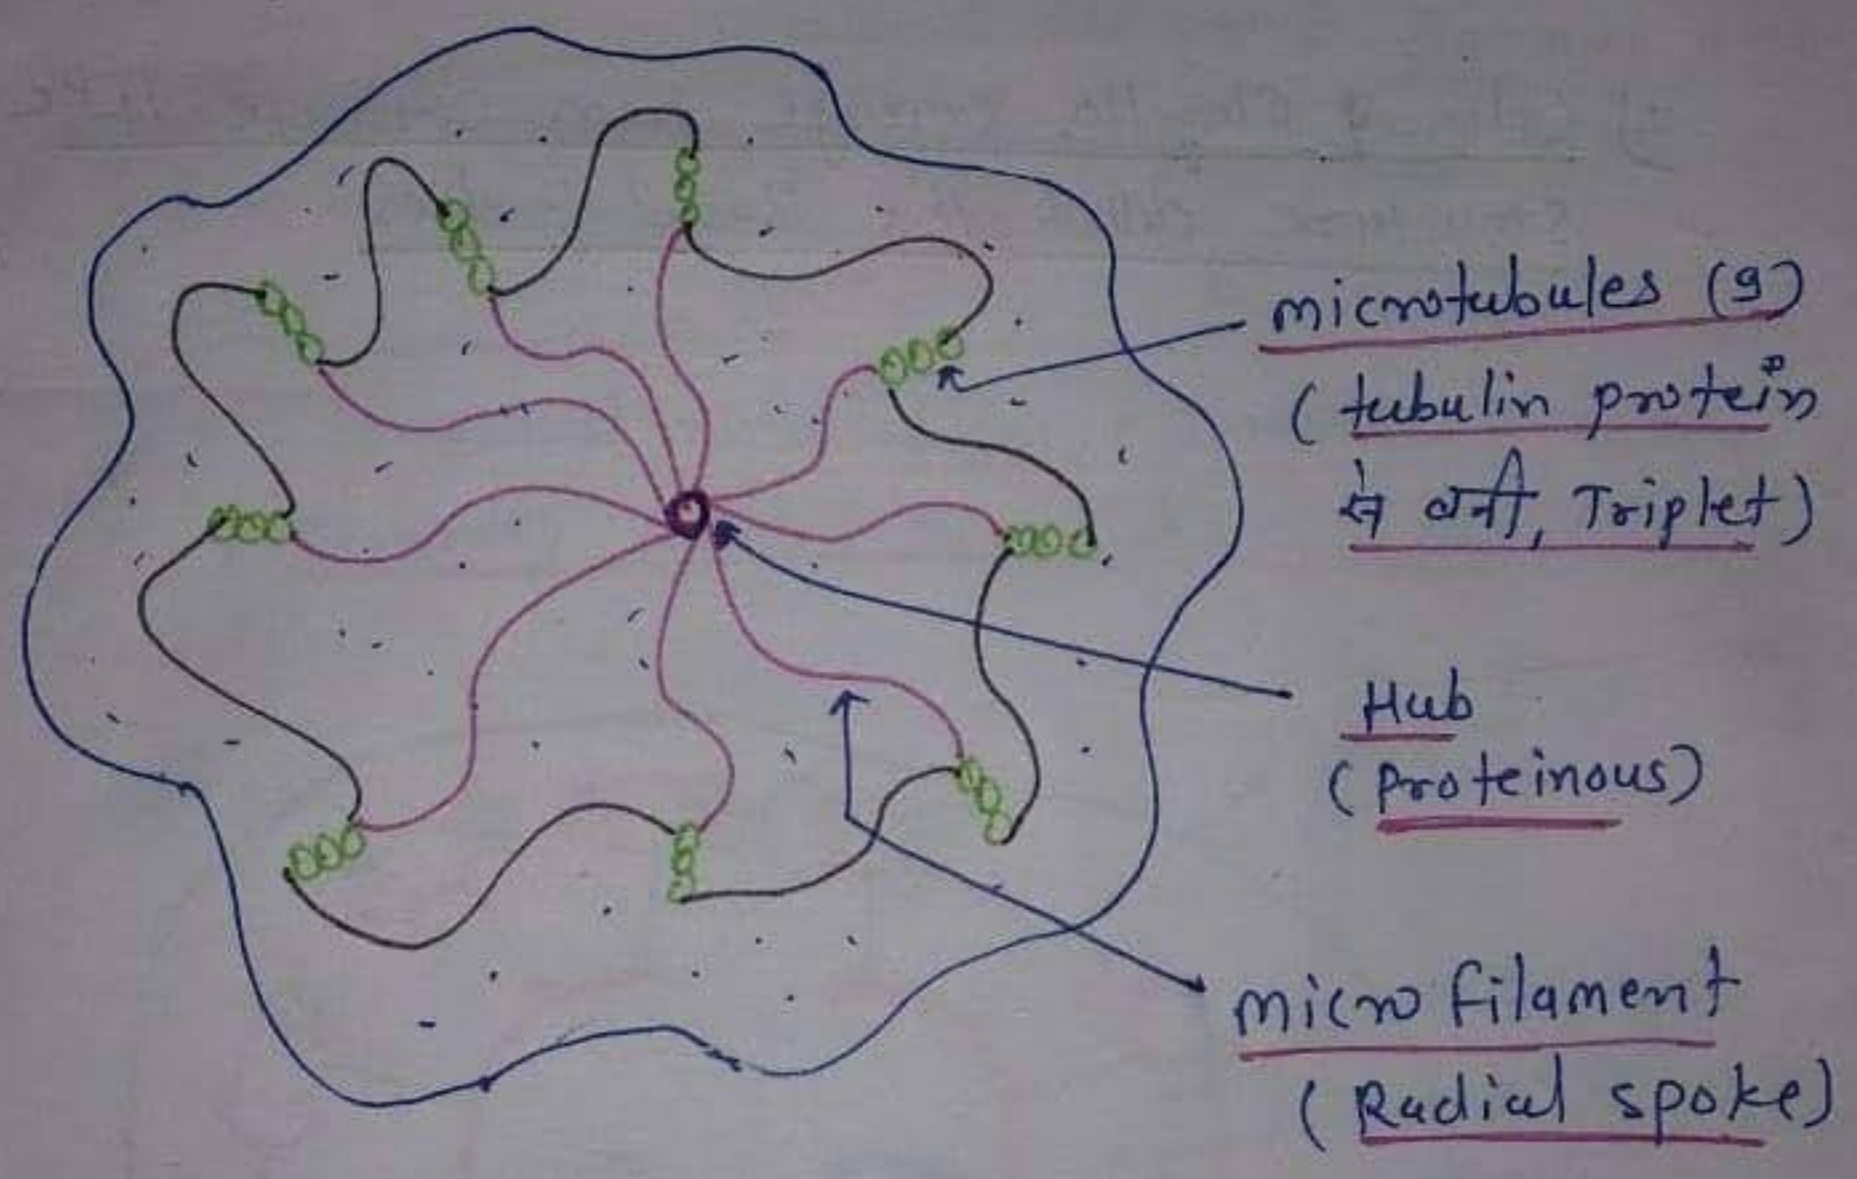 microtubules (9)
(tubulin protein
से बनी, Triplet)
Hub
(Proteinous)
micro filament
(Radial spoke)